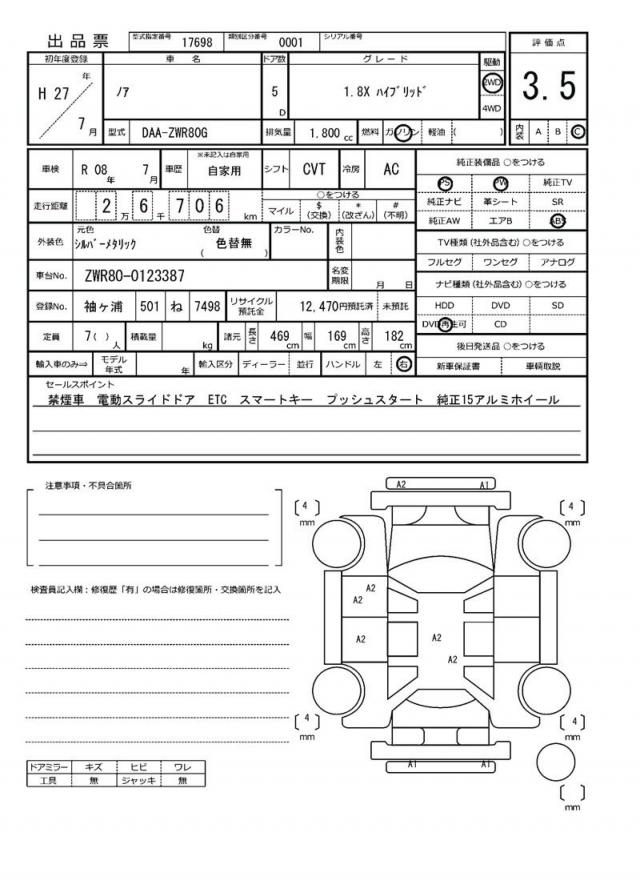 出品票 型式指定番号 17698 類別区分番号 0001 シリアル番号
評価点
3.5
内装 A B C
初年度登録 車名 ドア数 グレード 駆動
H 27 年 7 月 ノア 5 D 1.8X ハイブリッド 2WD 4WD
型式 DAA-ZWR80G 排気量 1,800 cc 燃料 ガソリン 軽油 ( )
車検 R 08 年 7 月 車歴 ※未記入は自家用 自家用 シフト CVT 冷房 AC
走行距離 2 万 6 千 7 0 6 km ○をつける
マイル $(交換) *(改ざん) #(不明)
外装色 元色 シルバーメタリック 色替 ( 色替無 ) カラーNo. 内装色
車台No. ZWR80-0123387 名変期限 月 日
登録No. 袖ヶ浦 501 ね 7498 リサイクル預託金 12,470円預託済 未預託
定員 7( ) 人 積載量 kg 諸元 長さ 469 cm 幅 169 cm 高さ 182 cm
輸入車のみ⇒ モデル年式 年 輸入区分 ディーラー 並行 ハンドル 左 右
純正装備品 ○をつける
PS PW 純正TV
純正ナビ 革シート SR
純正AW エアB ABS
TV種類 (社外品含む) ○をつける
フルセグ ワンセグ アナログ
ナビ種類 (社外品含む) ○をつける
HDD DVD SD
DVD再生可 CD
後日発送品 ○をつける
新車保証書 車輌取説
セールスポイント
禁煙車 電動スライドドア ETC スマートキー プッシュスタート 純正15アルミホイール
注意事項・不具合箇所
検査員記入欄:修復歴「有」の場合は修復箇所・交換箇所を記入
ドアミラー キズ ヒビ ワレ
工具 無 ジャッキ 無
A2 A1
[ 4 ] mm [ 4 ] mm
A2
A2
A2 A2
A2
[ 4 ] mm [ 4 ] mm
A1 A1
[ ] mm